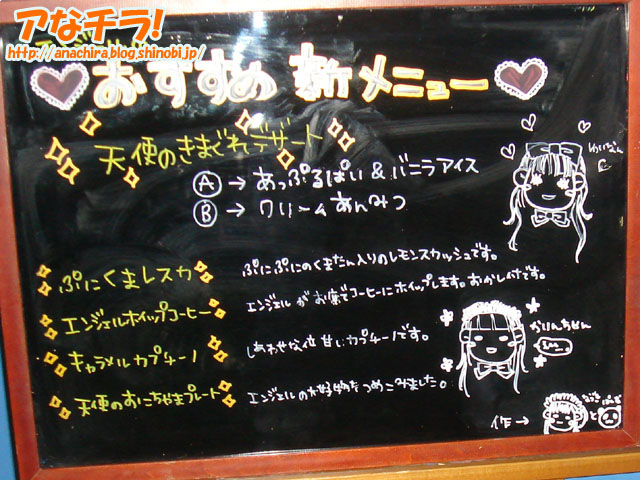 アなチラ!
http://anachira.blog.shinobi.jp/
おすすめ 新メニュー
天使のきまぐれデザート
Ⓐ → あっぷるぱい & バニラアイス
Ⓑ → クリームあんみつ
ぷにくまレスカ
ぷにぷにのくまたん入りのレモンスカッシュです。
エンジェルホイップコーヒー
エンジェルがお席でコーヒーにホイップします。おかし付です。
キャラメルカプチーノ
しあわせな位甘いカプチーノです。
天使のおにちやきプレート
エンジェルの大好物をつめこみました。
かりんちゃん
作→
と